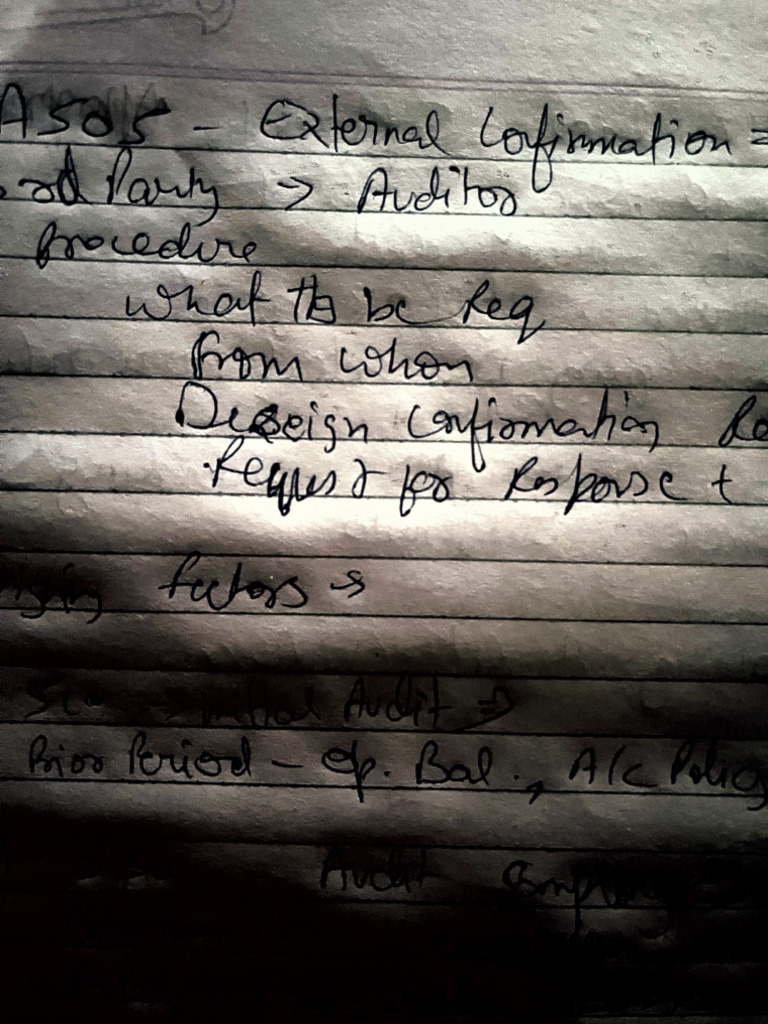 A505 - External Confirmation =
rd Party → Auditor
Procedure
what to be Req
From whom
Deseign Confirmation Re
Request for Response +
factors →
Initial Audit ⇒
Prior Period - Op. Bal., A/c Policy
Audit